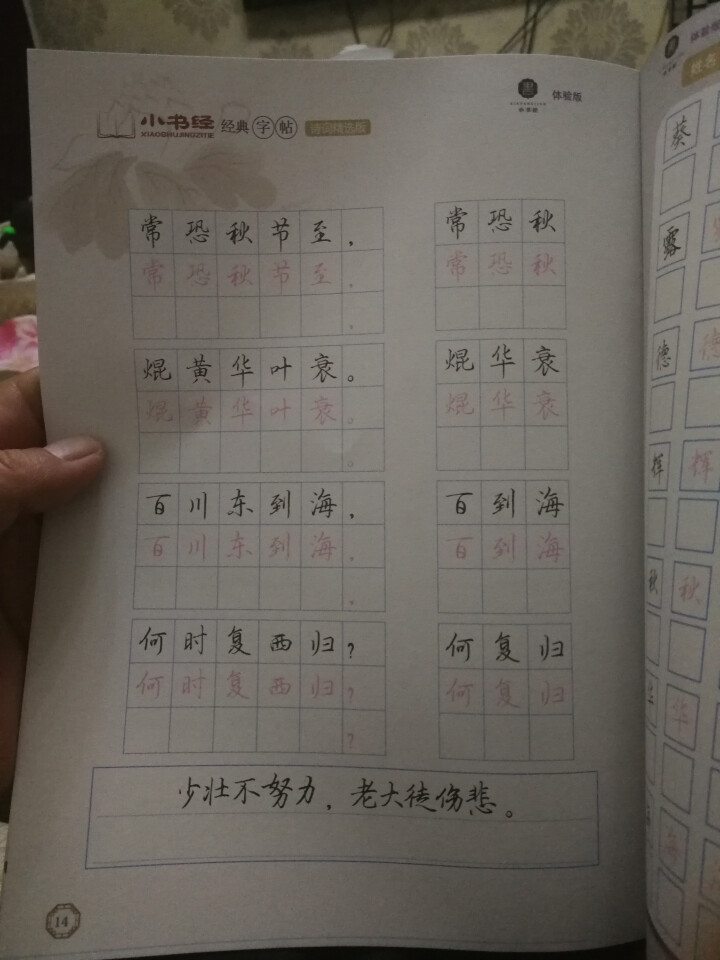 小书经
XIAOSHUJINGZITIE
经典字帖
诗词精选版
体验版
常恐秋节至，
常恐秋节至，
，
焜黄华叶衰。
焜黄华叶衰。
。
百川东到海，
百川东到海，
，
何时复西归？
何时复西归？
？
常恐秋
常恐秋
焜华衰
焜华衰
百到海
百到海
何复归
何复归
少壮不努力，老大徒伤悲。
14
体验
姓名
葵
露
德 德
挥 挥
秋 秋
华
海